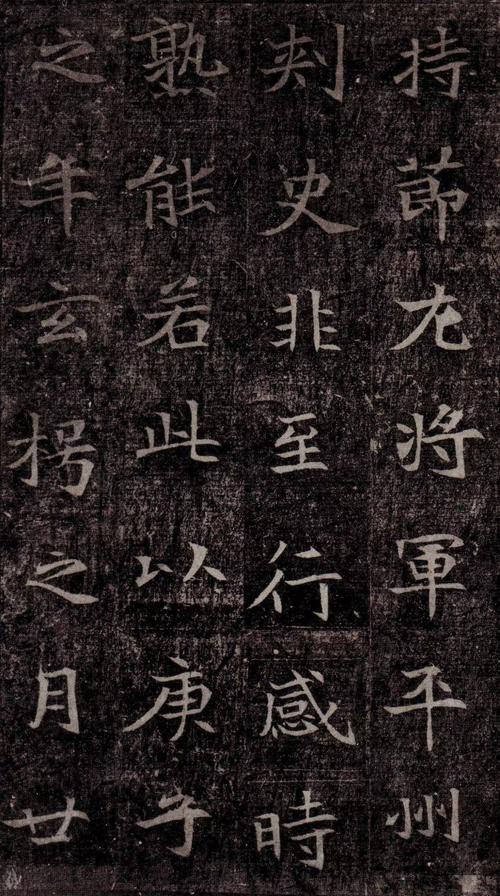 持節龙将軍平州
刾史非至行感時
熟能若此以庚子
之年玄枵之月廿